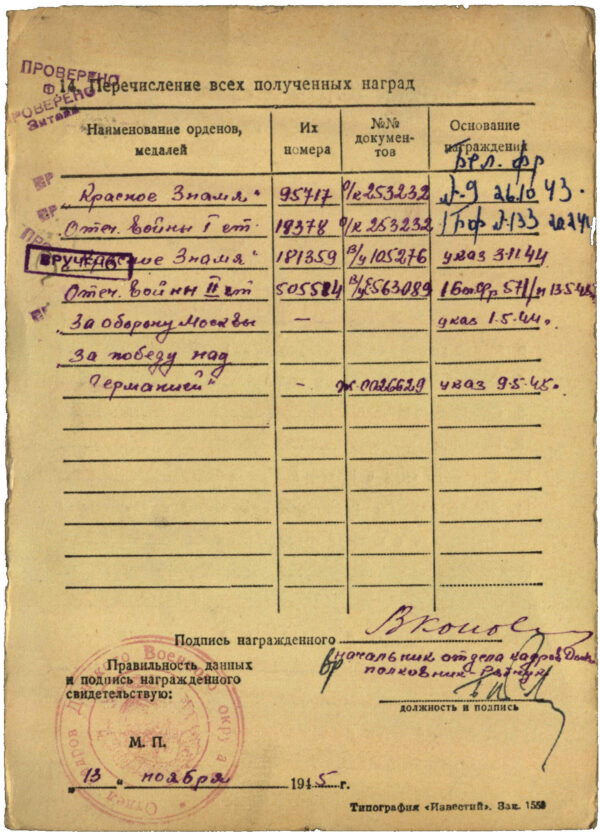 ПРОВЕРЕНО
14. Перечисление всех полученных наград
ПРОВЕРЕНО
Наименование орденов, медалей
Их номера
№№ документов
Основание награждения
„Красное Знамя“ 95717 О/к 253232 Бел. фр №9 26.10 43.
Отеч. Войны I ст. 18378 О/к 253232 1 Бф №133
ВРУЧ
Красное Знамя“ 181359 105276 указ 3.11.44
Отеч. Войны II ст 505514 563089
„За оборону Москвы — указ 1.5.44.
„За победу над
Германией“ — 0026629 указ 9.5.45.
Подпись награжденного
Правильность данных
и подпись награжденного
свидетельствую:
начальник отдела кадров
полковник
должность и подпись
М. П.
„13“ ноября 1945 г.
Типография «Известий». Зак. 1559